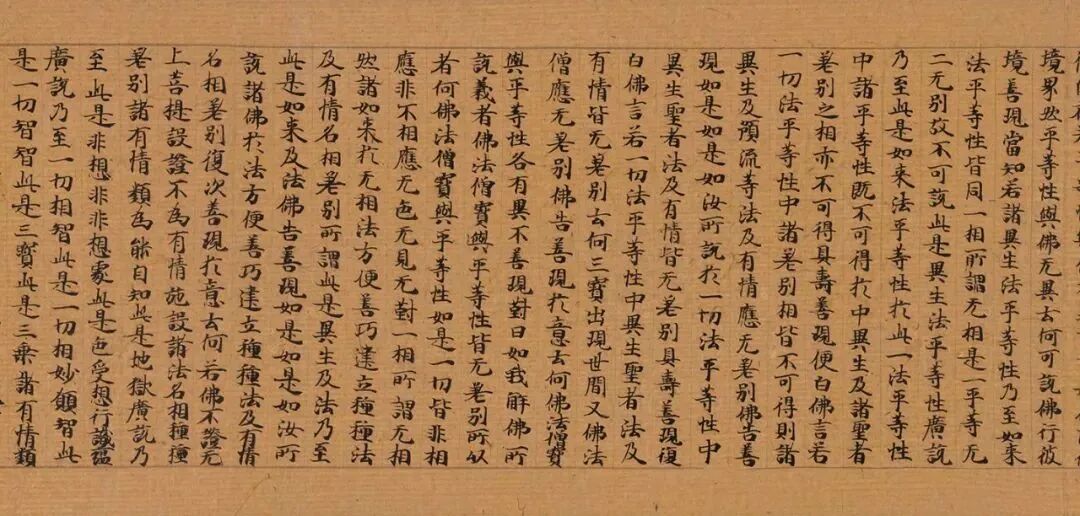 境界然平等性與佛无異云何可說佛行彼
境善現當知若諸異生法平等性乃至如来
法平等性皆同一相所謂无相是一平等无
二无別故不可說此是異生法平等性廣說
乃至此是如来法平等性於此一法平等性
中諸平等性既不可得於中異生及諸聖者
差別之相亦不可得具壽善現便白佛言若
一切法平等性中諸差別相皆不可得則諸
異生及預流等法及有情應无差別佛告善
現如是如是如汝所說於一切法平等性中
異生聖者法及有情皆无差別具壽善現復
白佛言若一切法平等性中異生聖者法及
有情皆无差別云何三寶出現世間又佛法
僧應无差別佛告善現於意云何佛法僧寶
與平等性各有異不善現對曰如我解佛所
說義者佛法僧寶與平等性皆无差別所以
者何佛法僧寶與平等性如是一切皆非相
應非不相應无色无見无對一相所謂无相
然諸如来於无相法方便善巧建立種種法
及有情名相差別所謂此是異生及法乃至
此是如来及法佛告善現如是如是如汝所
說諸佛於法方便善巧建立種種法及有情
名相差別復次善現於意云何若佛不證无
上菩提設證不為有情施設諸法名相種種
差別諸有情類為能自知此是地獄廣說乃
至此是非想非非想處此是色受想行識蘊
廣說乃至一切相智此是一切相妙願智此
是一切智智此是三寶此是三乘諸有情類